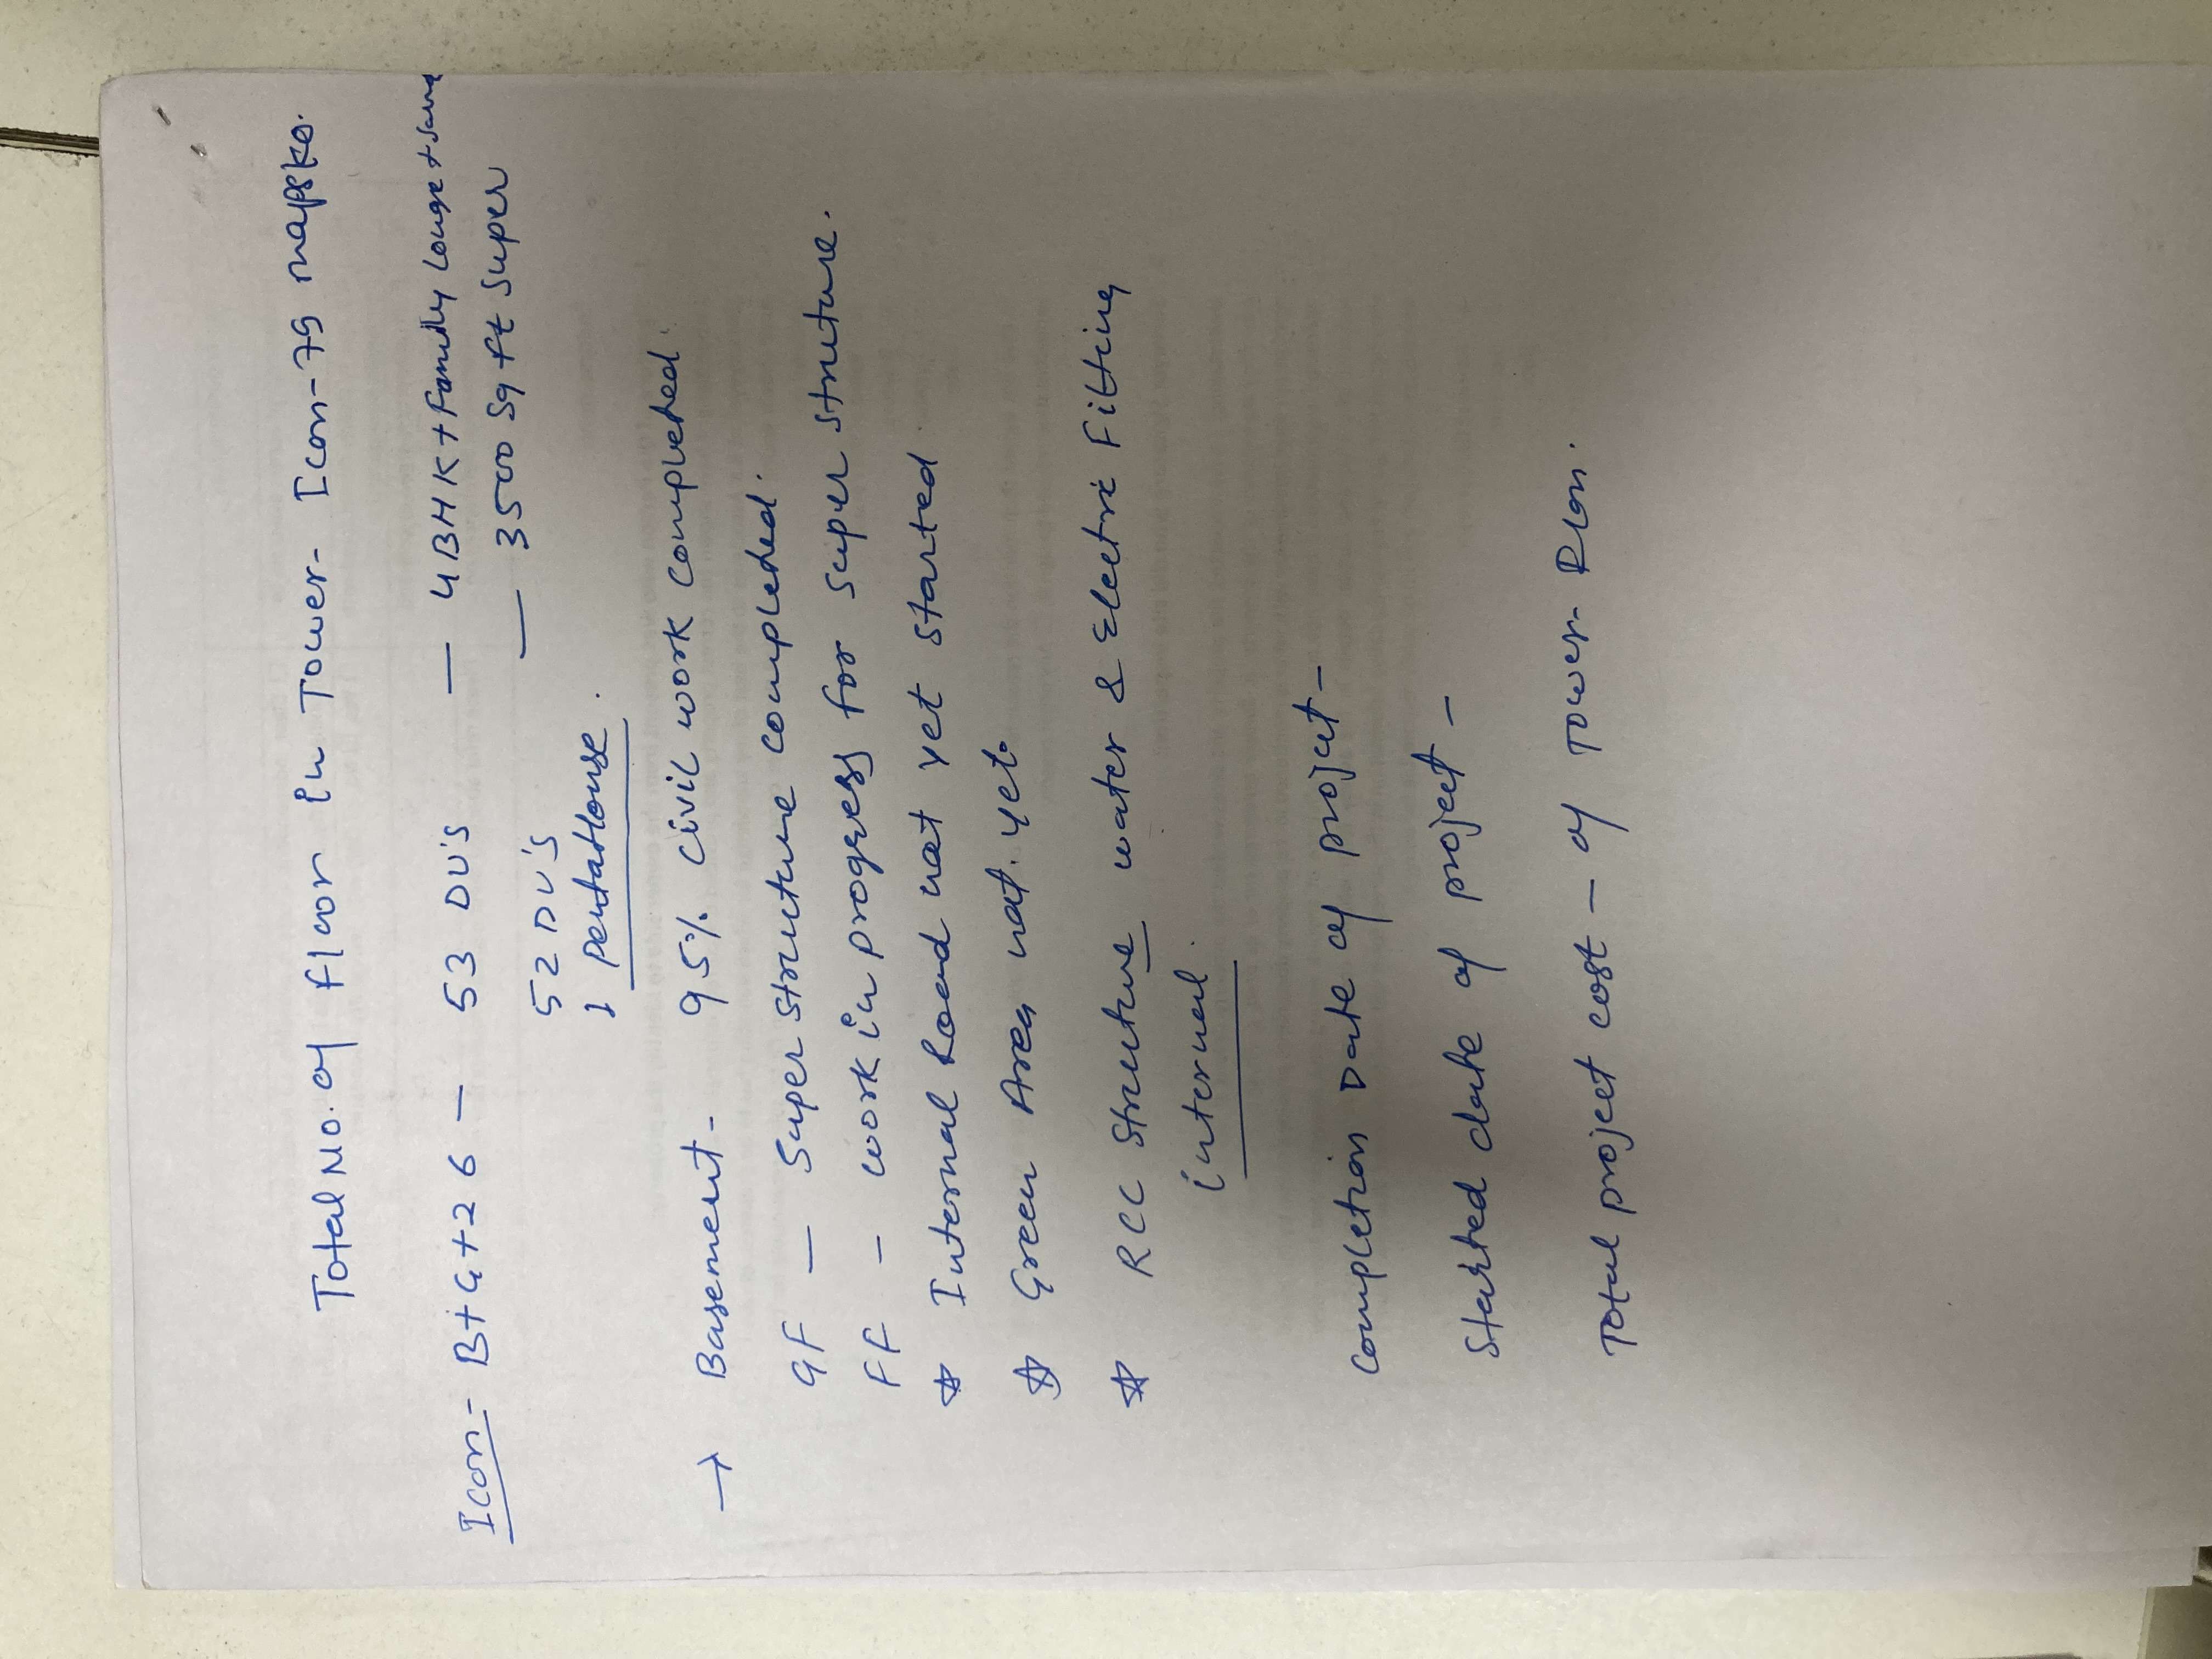 Total No. of floor in Tower- Icon-79 mapsko.
Icon- B+G+26 - 53 DU's - 4BHK+Family Lounge+Serv
52 DU's - 3500 Sq ft Super
1 pentaHouse.
→ Basement- 95% civil work completed.
GF - Super structure completed.
FF - work in progress for super struture.
☆ Internal Road not yet started
☆ Green Area not. yet.
☆ RCC Structure water & Electric Fitting
internal.
Completion Date of project-
Started date of project-
Total project cost - of Tower Plan.